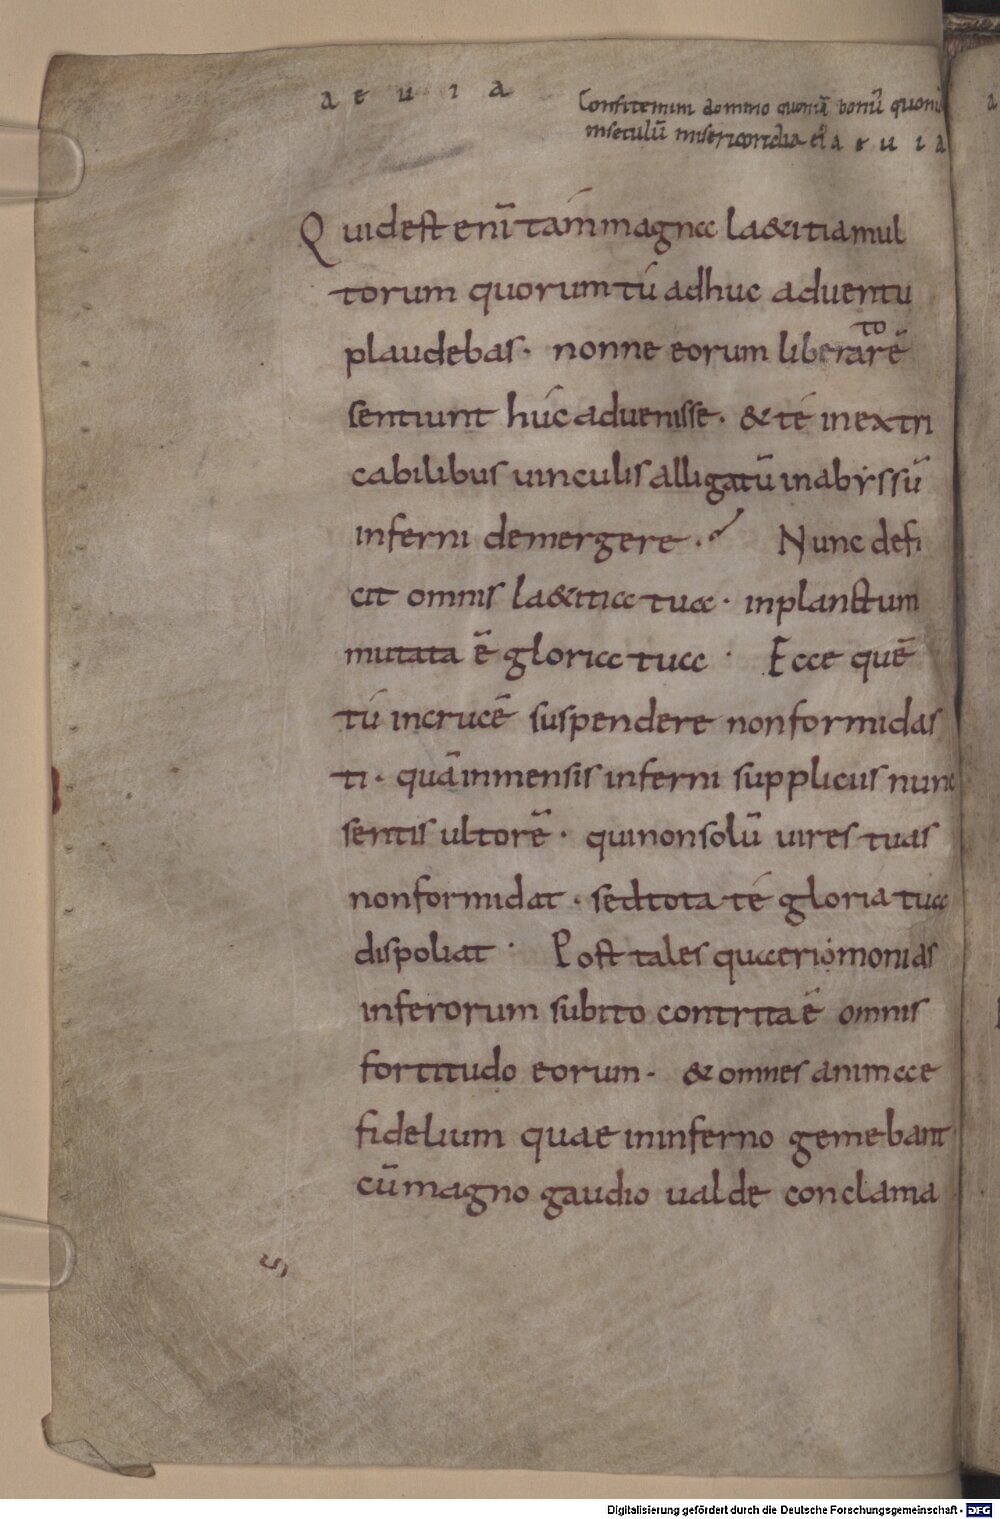 a e u i a
Confitemini domino quoniā bonū quoniā
inseculū misericordia eī a e u i a
Quidest enī tám magna la&itia mul
torum quorum tú adhuc aduentu
plaudebas· nonne eorum liberatorē
sentiunt húc aduenisse· & té inextri
cabilibus uinculis alligatū in abyssū
inferni demergere·? Nunc defi
cit omnis la&itia tua· inplanctum
mutata ē gloria tua· Ecce quē
tú incrucē suspendere nonformidas
ti· quā inmensis inferni suppliciis nunc
sentis ultorē· quinonsolū uires tuas
nonformidat· sedtota té gloria tua
dispoliat· Post tales quaerimonias
inferorum subito contrita ē omnis
fortitudo eorum· & omnes animae
fidelium quae ininferno gemebant
cū magno gaudio ualde conclama
Digitalisierung gefördert durch die Deutsche Forschungsgemeinschaft - DFG